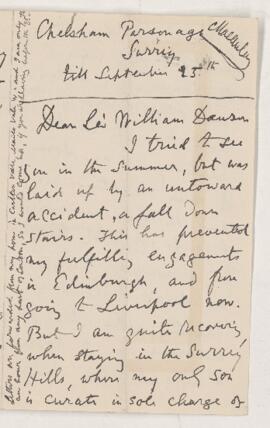 Chelsham Parsonage
Surrey
till September 25th
Dear Sir William Dawson
I tried to see
you in the summer, but was
laid up by an untoward
accident, a fall down
stairs. This has prevented
my fulfilling engagements
in Edinburgh, and from
going to Liverpool now.
But I am quite recovering
when staying in the Surrey
Hills, where my only son
is curate in sole charge of
letters are forwarded from my home